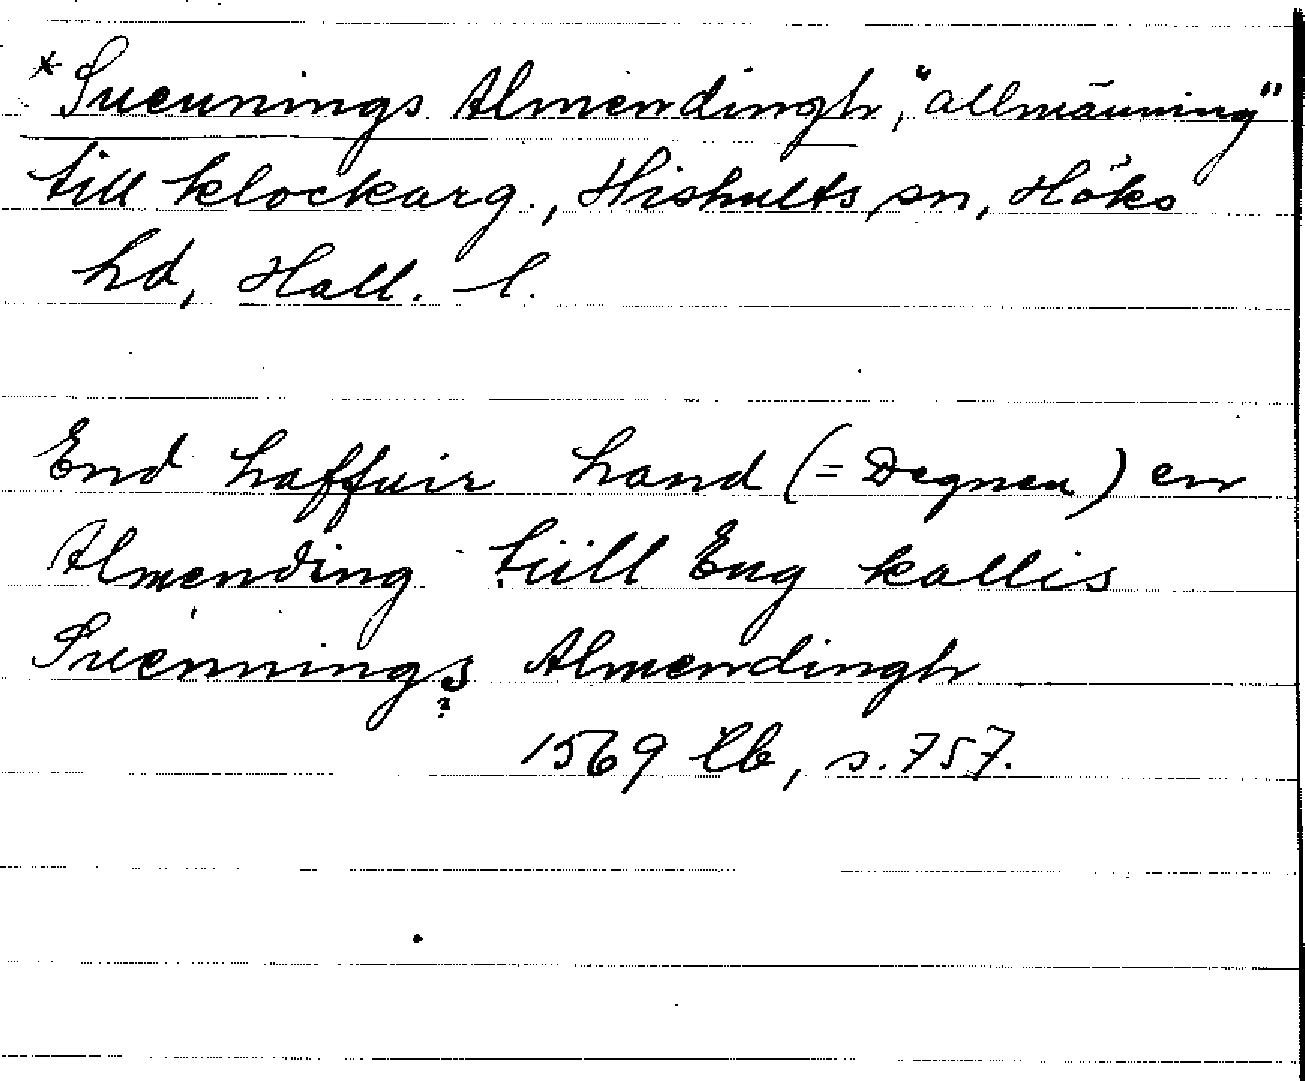 * Suennings Almendingh, "allmänning"
till klockarg., Hishults sn, Höks
hd, Hall. l.
End haffuir hand (= Degnen) en
Almending tiill Eng kallis
Suennings Almendingh
?
1569 lb, s. 757.